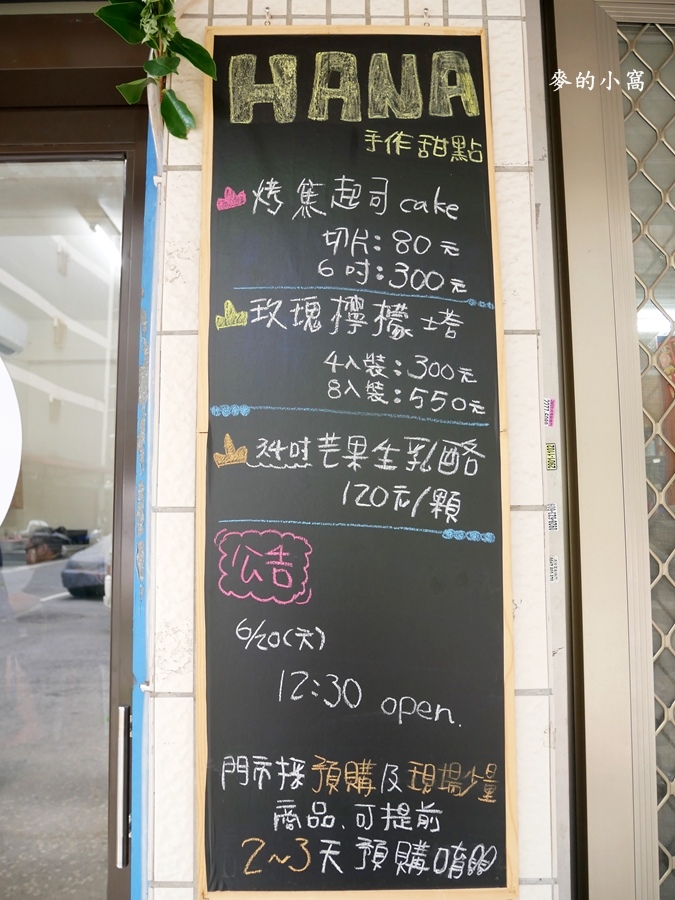 麥的小窩
HANA
手作甜點
烤焦起司 cake
切片:80元
6吋:300元
玫瑰檸檬塔
4入裝:300元
8入裝:550元
3.4吋芒果生乳酪
120元/顆
公告
6/20(天)
12:30 open.
門市採預購及現場少量
商品、可提前
2~3天預購唷